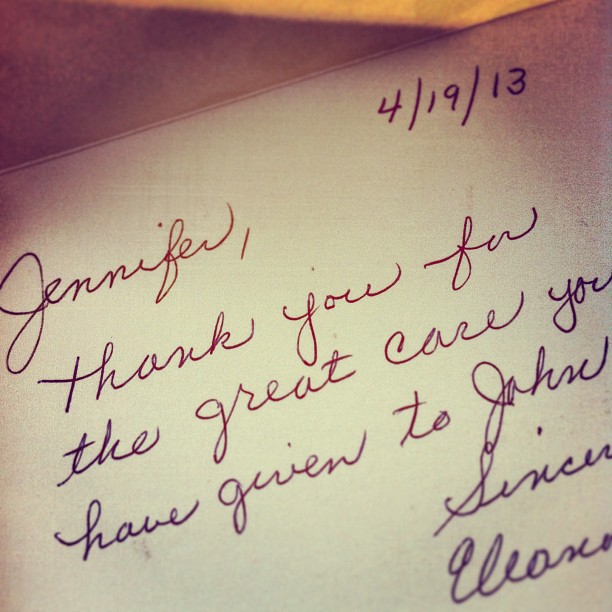 4/19/13
Jennifer,
Thank you for
the great care you
have given to John
Sincer
Eleano